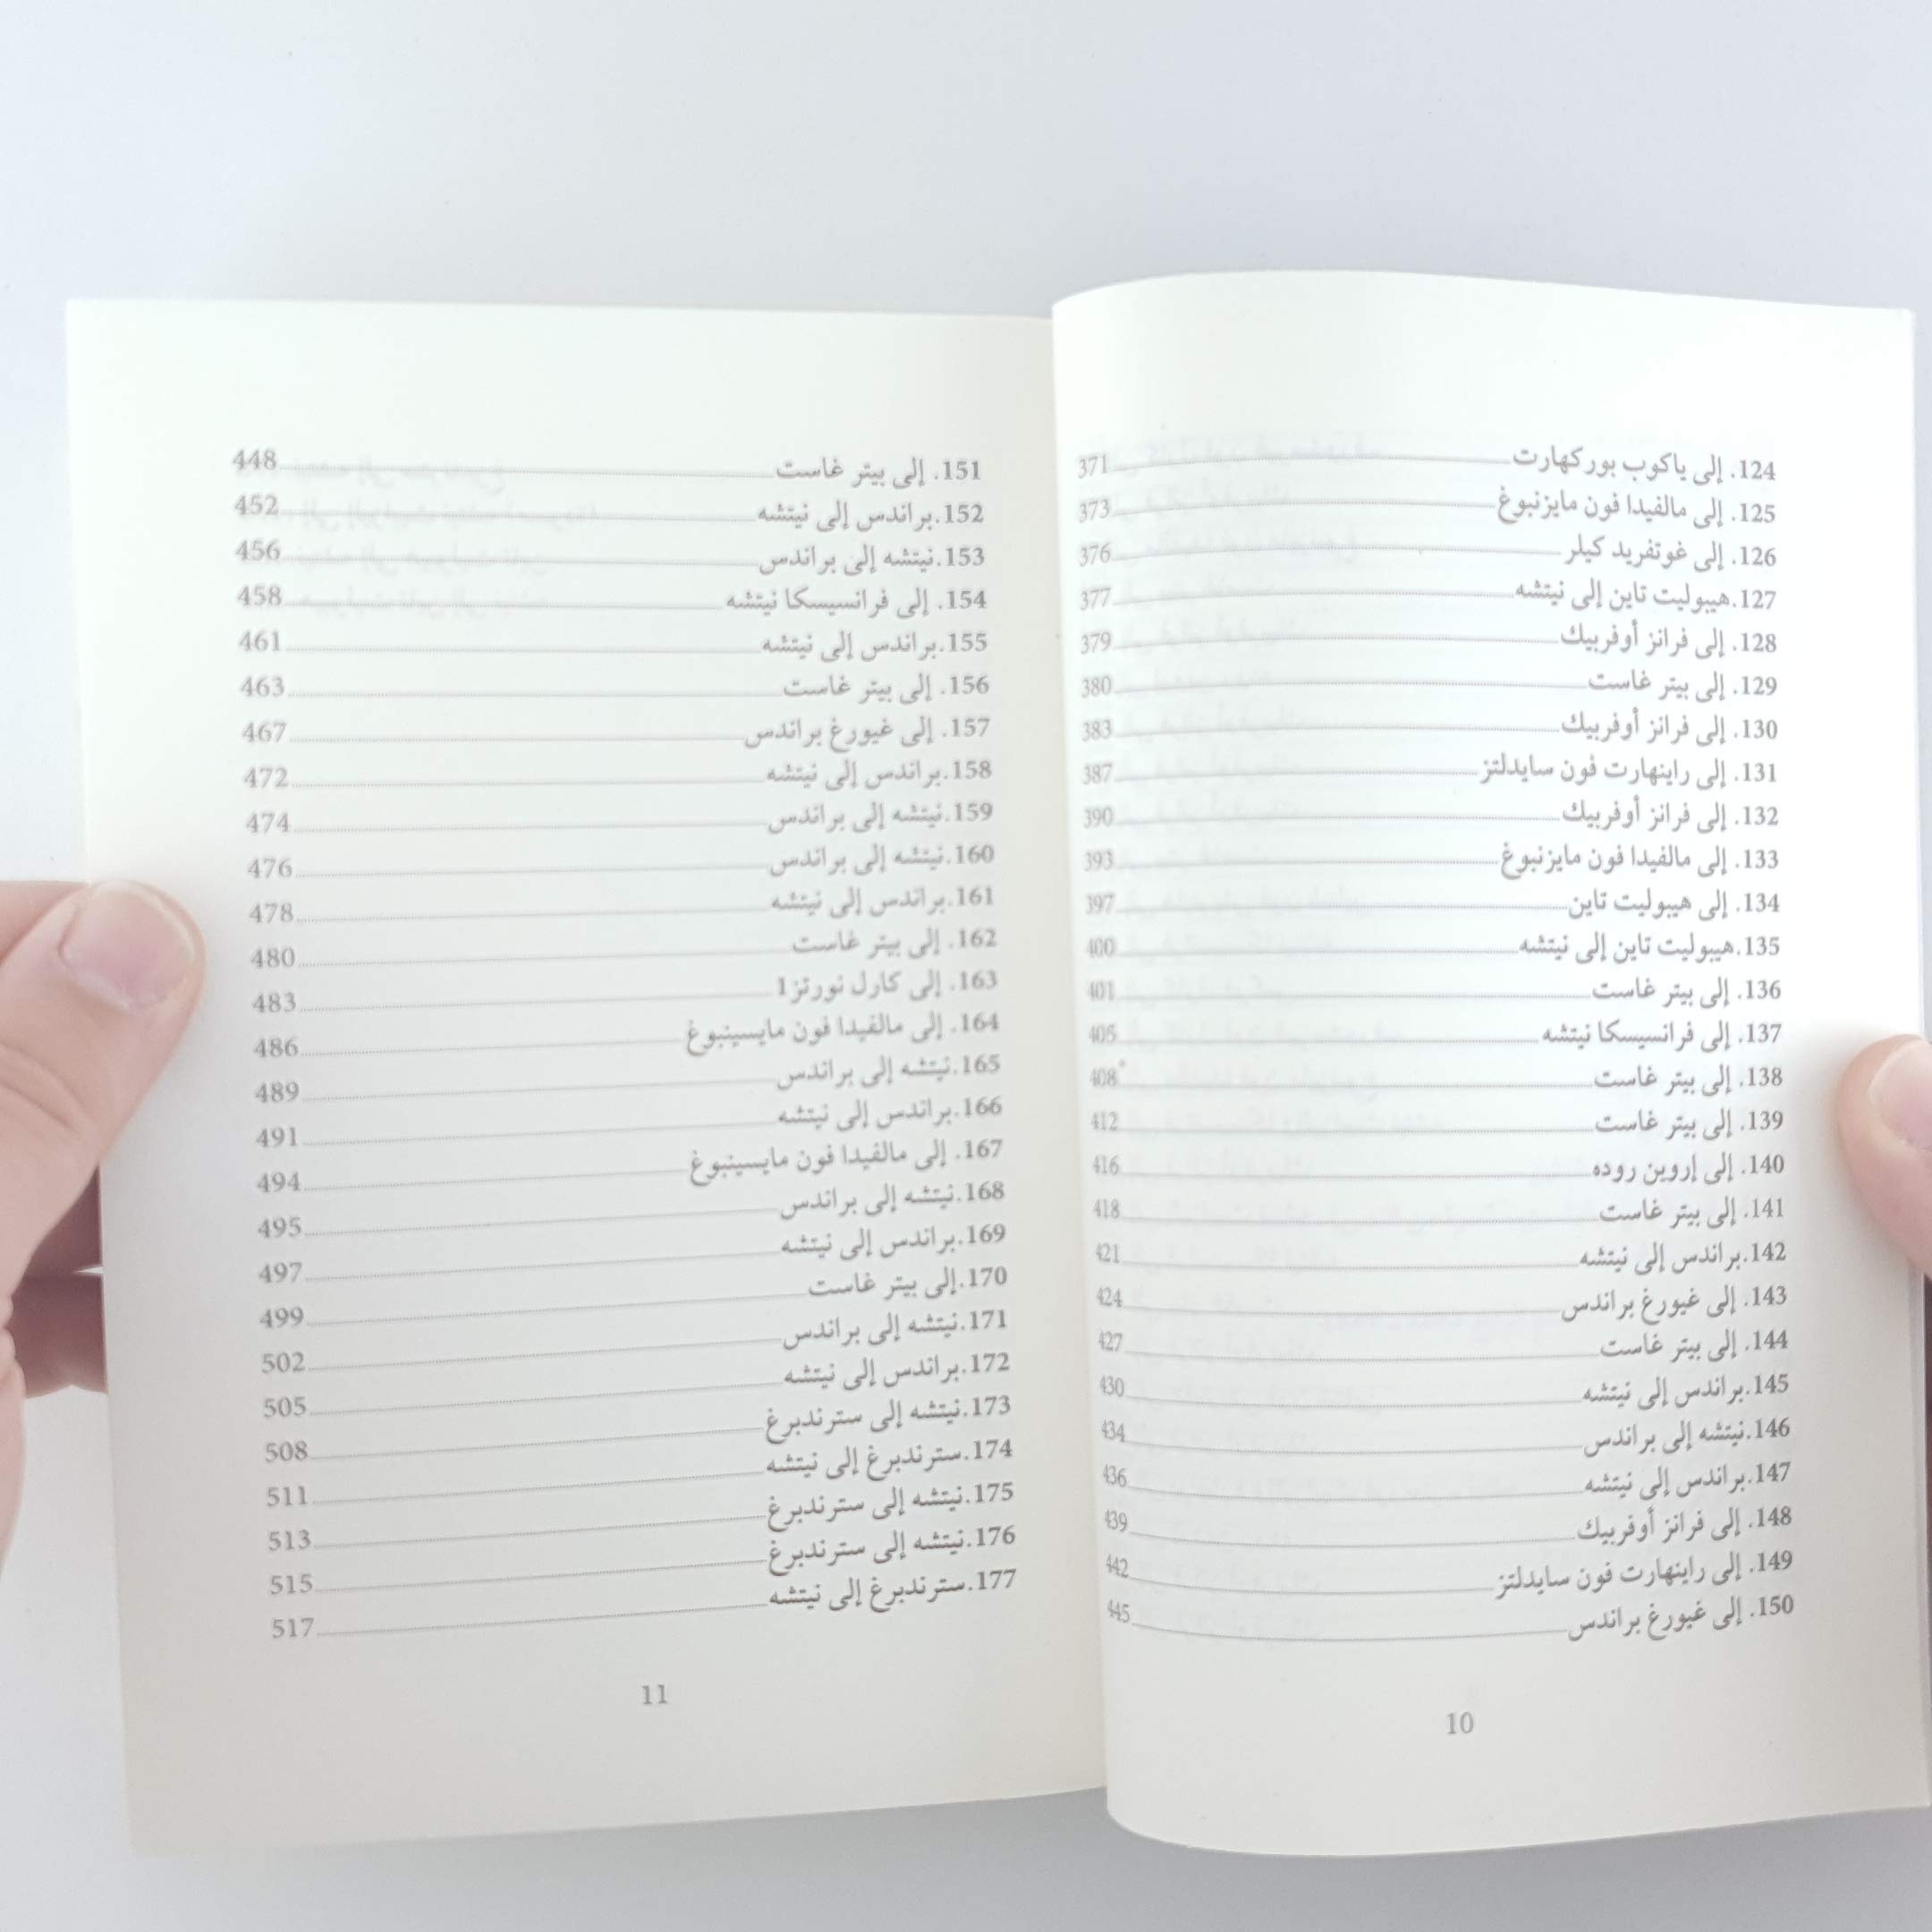 124. إلى ياكوب بوركهارت 371
125. إلى مالفيدا فون مايزنبوغ 373
126. إلى غوتفريد كيلر 376
127.هيبوليت تاين إلى نيتشه 377
128. إلى فرانز أوفربيك 379
129. إلى بيتر غاست 380
130. إلى فرانز أوفربيك 383
131. إلى راينهارت فون سايدلتز 387
132. إلى فرانز أوفربيك 390
133. إلى مالفيدا فون مايزنبوغ 393
134. إلى هيبوليت تاين 397
135.هيبوليت تاين إلى نيتشه 400
136. إلى بيتر غاست 401
137. إلى فرانسيسكا نيتشه 405
138. إلى بيتر غاست 408
139. إلى بيتر غاست 412
140. إلى إروين روده 416
141. إلى بيتر غاست 418
142.براندس إلى نيتشه 421
143. إلى غيورغ براندس 424
144. إلى بيتر غاست 427
145.براندس إلى نيتشه 430
146.نيتشه إلى براندس 434
147.براندس إلى نيتشه 436
148. إلى فرانز أوفربيك 439
149. إلى راينهارت فون سايدلتز 442
150. إلى غيورغ براندس 445
10
151. إلى بيتر غاست 448
152.براندس إلى نيتشه 452
153.نيتشه إلى براندس 456
154. إلى فرانسيسكا نيتشه 458
155.براندس إلى نيتشه 461
156. إلى بيتر غاست 463
157. إلى غيورغ براندس 467
158.براندس إلى نيتشه 472
159.نيتشه إلى براندس 474
160.نيتشه إلى براندس 476
161.براندس إلى نيتشه 478
162. إلى بيتر غاست 480
163. إلى كارل نورتز1 483
164. إلى مالفيدا فون مايسينبوغ 486
165.نيتشه إلى براندس 489
166.براندس إلى نيتشه 491
167. إلى مالفيدا فون مايسينبوغ 494
168.نيتشه إلى براندس 495
169.براندس إلى نيتشه 497
170.إلى بيتر غاست 499
171.نيتشه إلى براندس 502
172.براندس إلى نيتشه 505
173.نيتشه إلى سترندبرغ 508
174.سترندبرغ إلى نيتشه 511
175.نيتشه إلى سترندبرغ 513
176.نيتشه إلى سترندبرغ 515
177.سترندبرغ إلى نيتشه 517
11